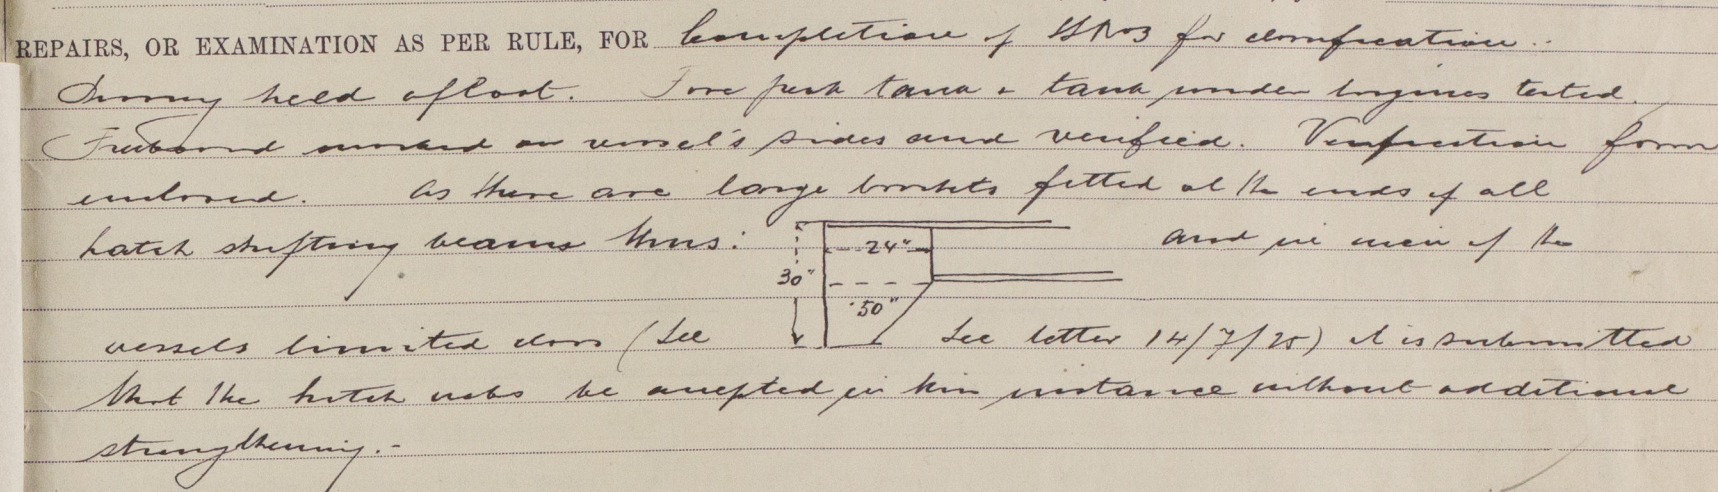 REPAIRS, OR EXAMINATION AS PER RULE, FOR Completion of for classification.
held afloat. Fore peak tank & tank under Engines tested.
Freeboard marked on vessel's sides and verified. Verification form
enclosed. As there are large brackets fitted at the ends of all
hatch shifting beams thus: and in view of the
24"
30"
.50"
vessels limited class (See See letter 14/7/25) it is submitted
that the hatch webs be accepted in this instance without additional
strengthening.-